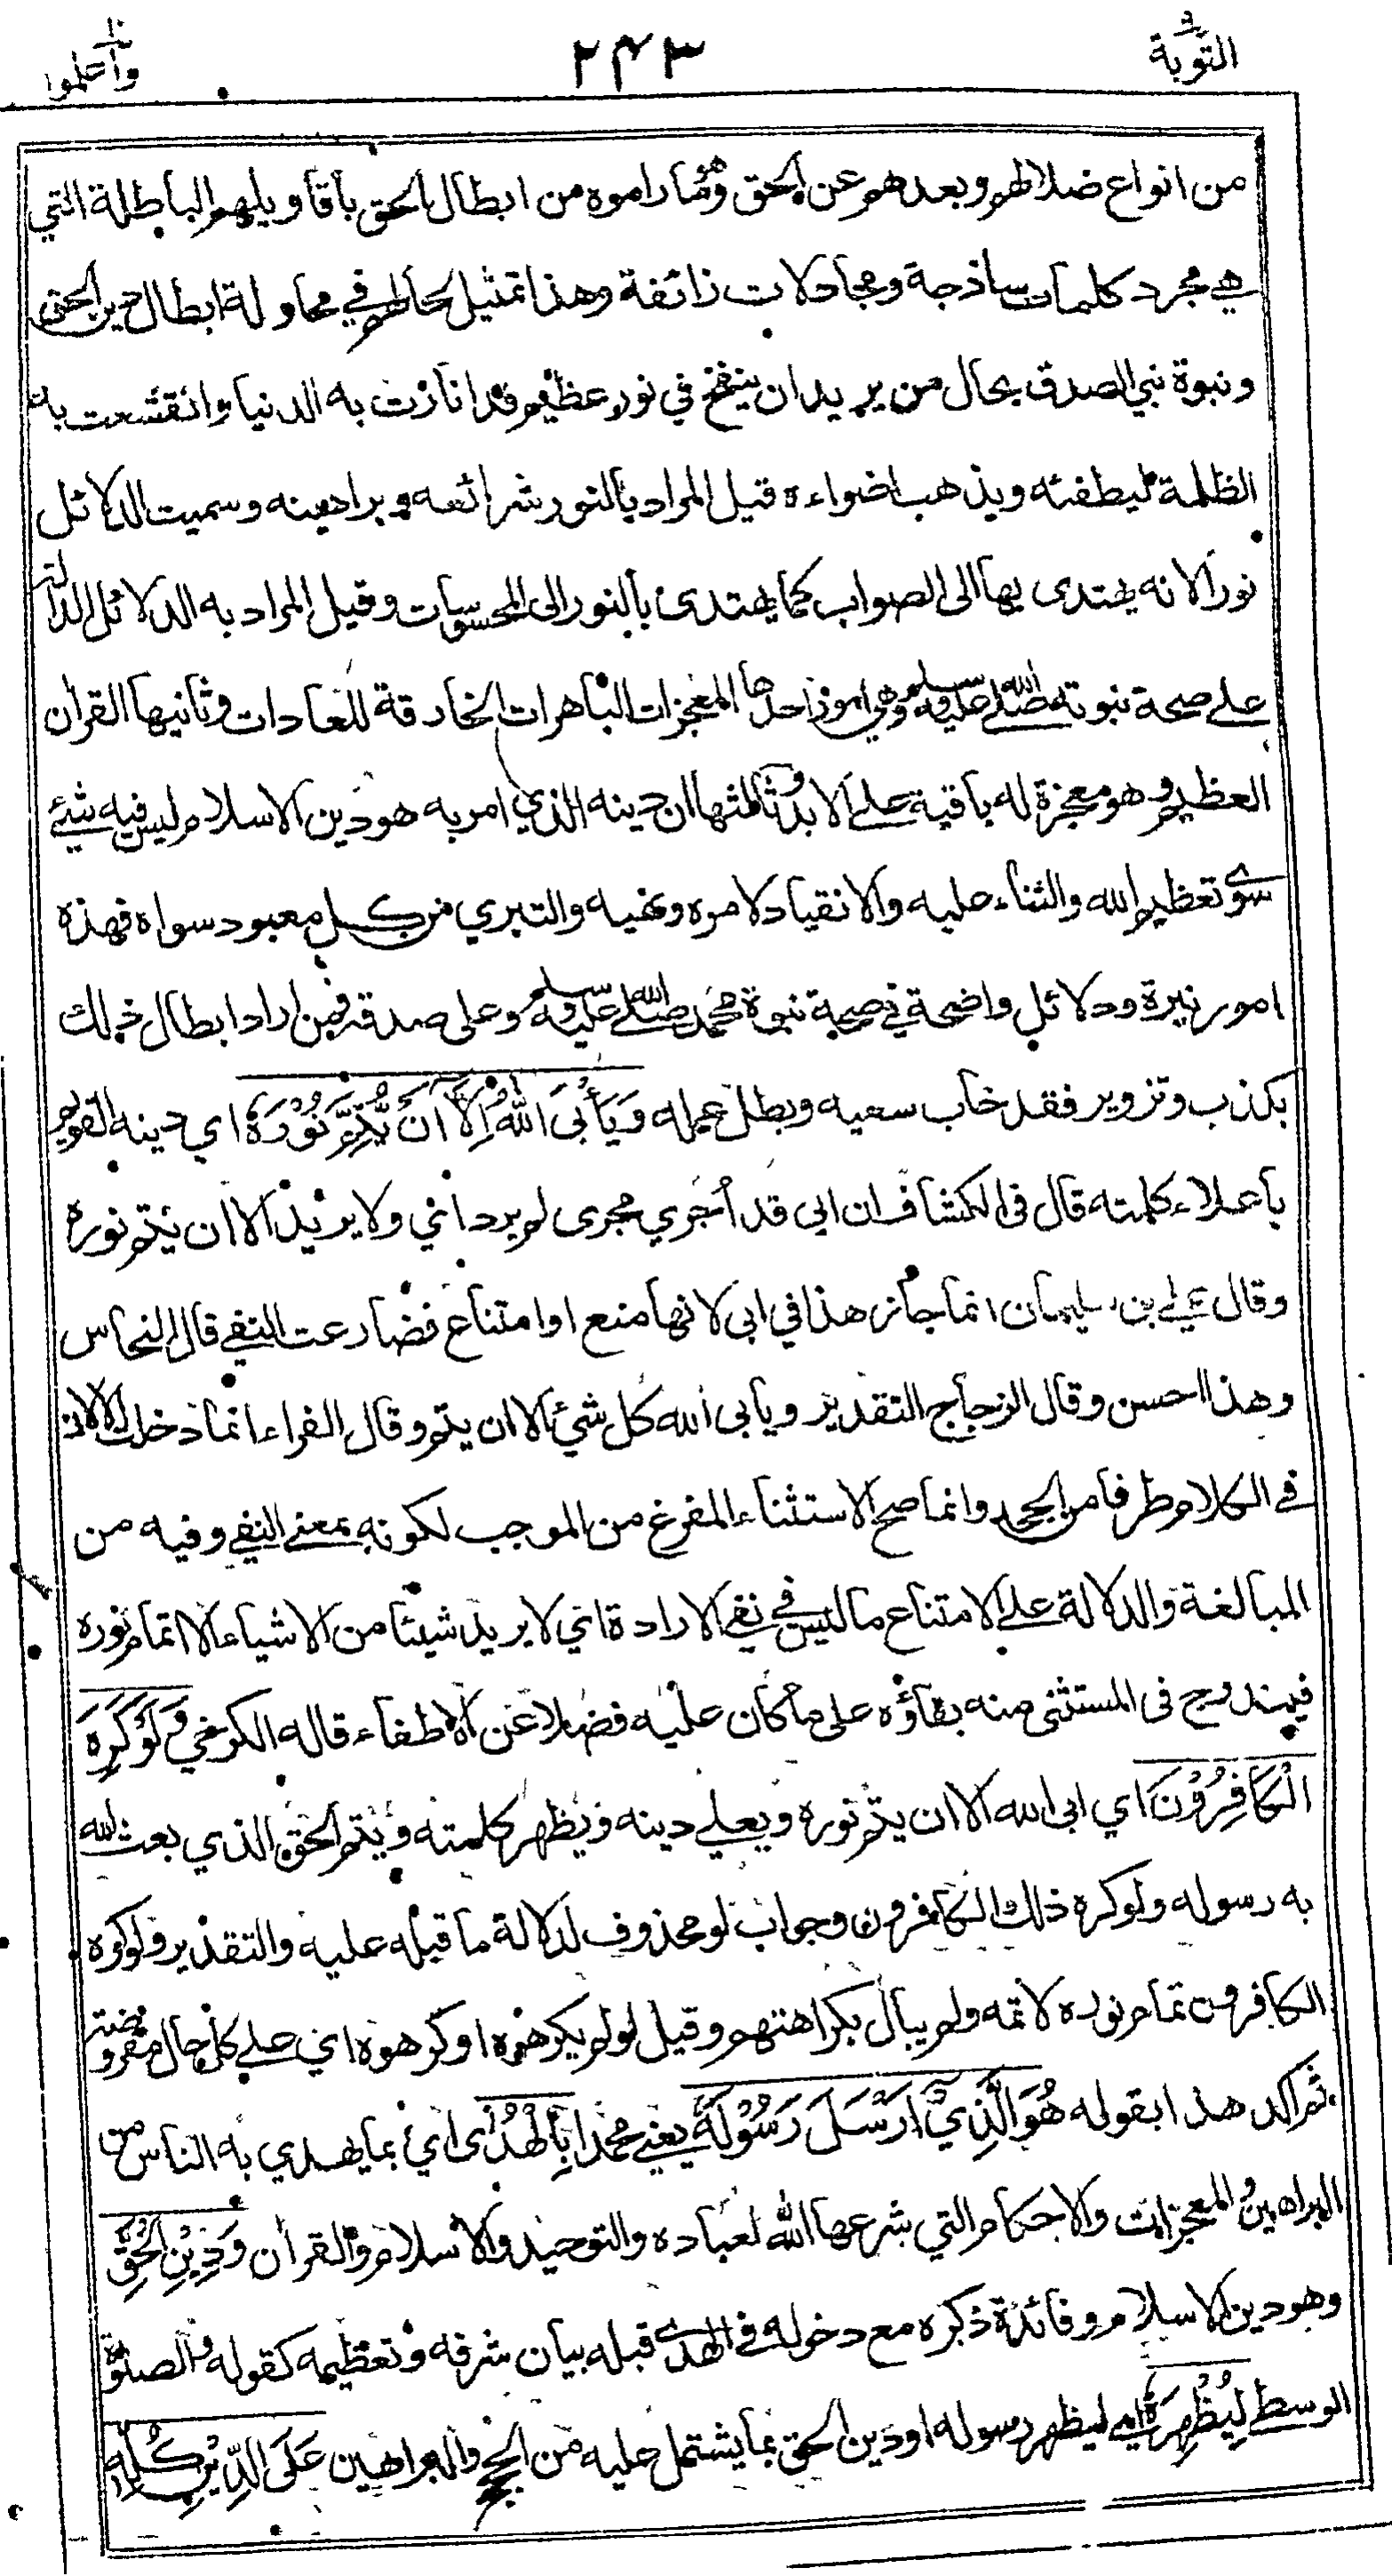 التوبة ٢٤٣ واعلموا
من انواع ضلالهم وبعدهم عن الحق وهمّا راموه من ابطال الحق بأقاويلهم الباطلة التي
هي مجرد كلمات ساذجة ومجادلات زائفة وهذا تمثيل لحالهم في محاولة ابطال دين الحق
ونبوة نبي الصدق بحال من يريد ان ينفخ في نور عظيم قد انارت به الدنيا وانقشعت به
الظلمة ليطفئه ويذهب اضواءه قيل المراد بالنور شرائعه وبراهينه وسميت الدلائل
نورا لانه يهتدى بها الى الصواب كما يهتدى بالنور الى المحسوسات وقيل المراد به الدلائل الدالة
على صحة نبوته صلى الله عليه وسلم وهي امور احدها المعجزات الباهرات الخارقة للعادات وثانيها القران
العظيم وهو معجزة له باقية على الابد وثالثها ان دينه الذي امر به هو دين الاسلام ليس فيه شيئ
سوى تعظيم الله والثناء عليه والانقياد لامره ونهيه والتبري من كل معبود سواه فهذه
امور نيرة ودلائل واضحة في صحة نبوة محمد صلى الله عليه وسلم وعلى صدقه فمن اراد ابطال ذلك
بكذب وتزوير فقد خاب سعيه وبطل عمله وَيَأْبَى اللّٰهُ اِلَّا اَنْ يُّتِمَّ نُوْرَهُ اي دينه القويم
بأعلاء كلمته قال فى الكشاف ان ابي قد أجري مجرى لم يرد اي ولا يريد الا ان يتم نوره
وقال علي بن سليمان انما جاز هذا في ابى لانها منع او امتناع فضارعت النفي قال النحاس
وهذا احسن وقال الزجاج التقدير ويابى الله كل شيئ الا ان يتم وقال الفراء انما دخلت الا لان
في الكلام طرفا من الجحد وانما صح الاستثناء المفرغ من الموجب لكونه بمعنى النفي وفيه من
المبالغة والدلالة على الامتناع ما ليس في نفي الارادة اي لا يريد شيئا من الاشياء الا اتمام نوره
فيندرج فى المستثنى منه بقاؤه على ما كان عليه فضلا عن الاطفاء قاله الكرخي وَلَوْ كَرِهَ
الْكَافِرُوْنَ اي ابى الله الا ان يتم نوره ويعلي دينه ويظهر كلمته ويتم الحق الذي بعث الله
به رسوله ولو كره ذلك الكافرون وجواب لو محذوف لدلالة ما قبله عليه والتقدير ولو كره
الكافرون تمام نوره لاتمه ولم يبال بكراهتهم وقيل لو لم يكرهوه او كرهوه اي على كل حال مفروضة
ثم اكد هذا بقوله هُوَ الَّذِيْ اَرْسَلَ رَسُوْلَهُ يعني محمدا بِالْهُدٰى اي بما يهدي به الناس من
البراهين والمعجزات والاحكام التي شرعها الله لعباده والتوحيد والاسلام والقرأن وَدِيْنِ الْحَقِّ
وهو دين الاسلام وفائدة ذكره مع دخوله في الهدى قبله بيان شرفه وتعظيمه كقوله والصلوة
الوسطى لِيُظْهِرَهُ اي ليظهر رسوله او دين الحق بما يشتمل عليه من الحجج والبراهين عَلَى الدِّيْنِ كُلِّهٖ